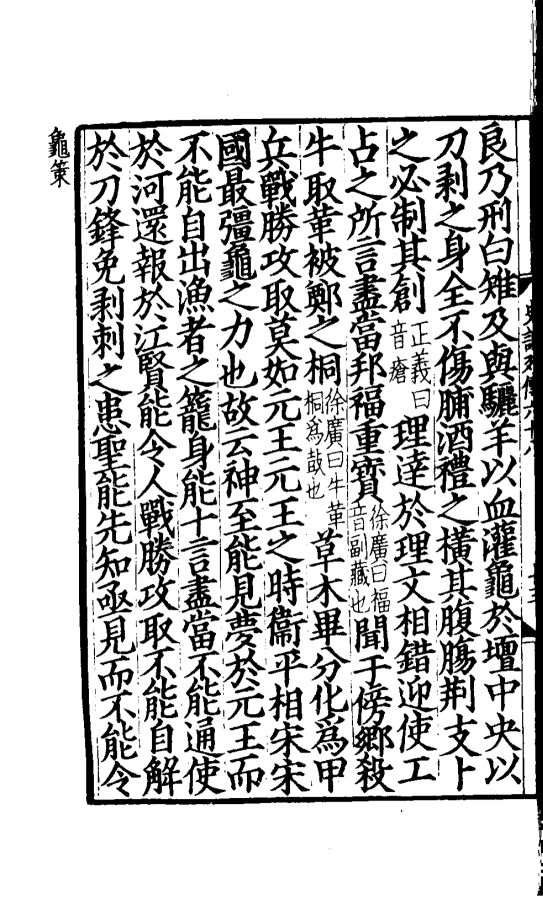 良乃刑白雉及與驪羊以血灌龜於壇中央以
刀剥之身全不傷脯酒禮之横其腹腸荆支卜
之必制其創正義曰音瘡理達於理文相錯迎使工
占之所言盡當邦福重寳徐廣曰福音副藏也聞于傍鄉殺
牛取革被鄭之桐徐廣曰牛革桐爲鼓也草木畢分化爲甲
兵戰勝攻取莫如元王元王之時衞平相宋宋
國最彊龜之力也故云神至能見夢於元王而
不能自出漁者之籠身能十言盡當不能通使
於河還報於江賢能令人戰勝攻取不能自解
於刀鋒免剥刺之患聖能先知亟見而不能令
龜策